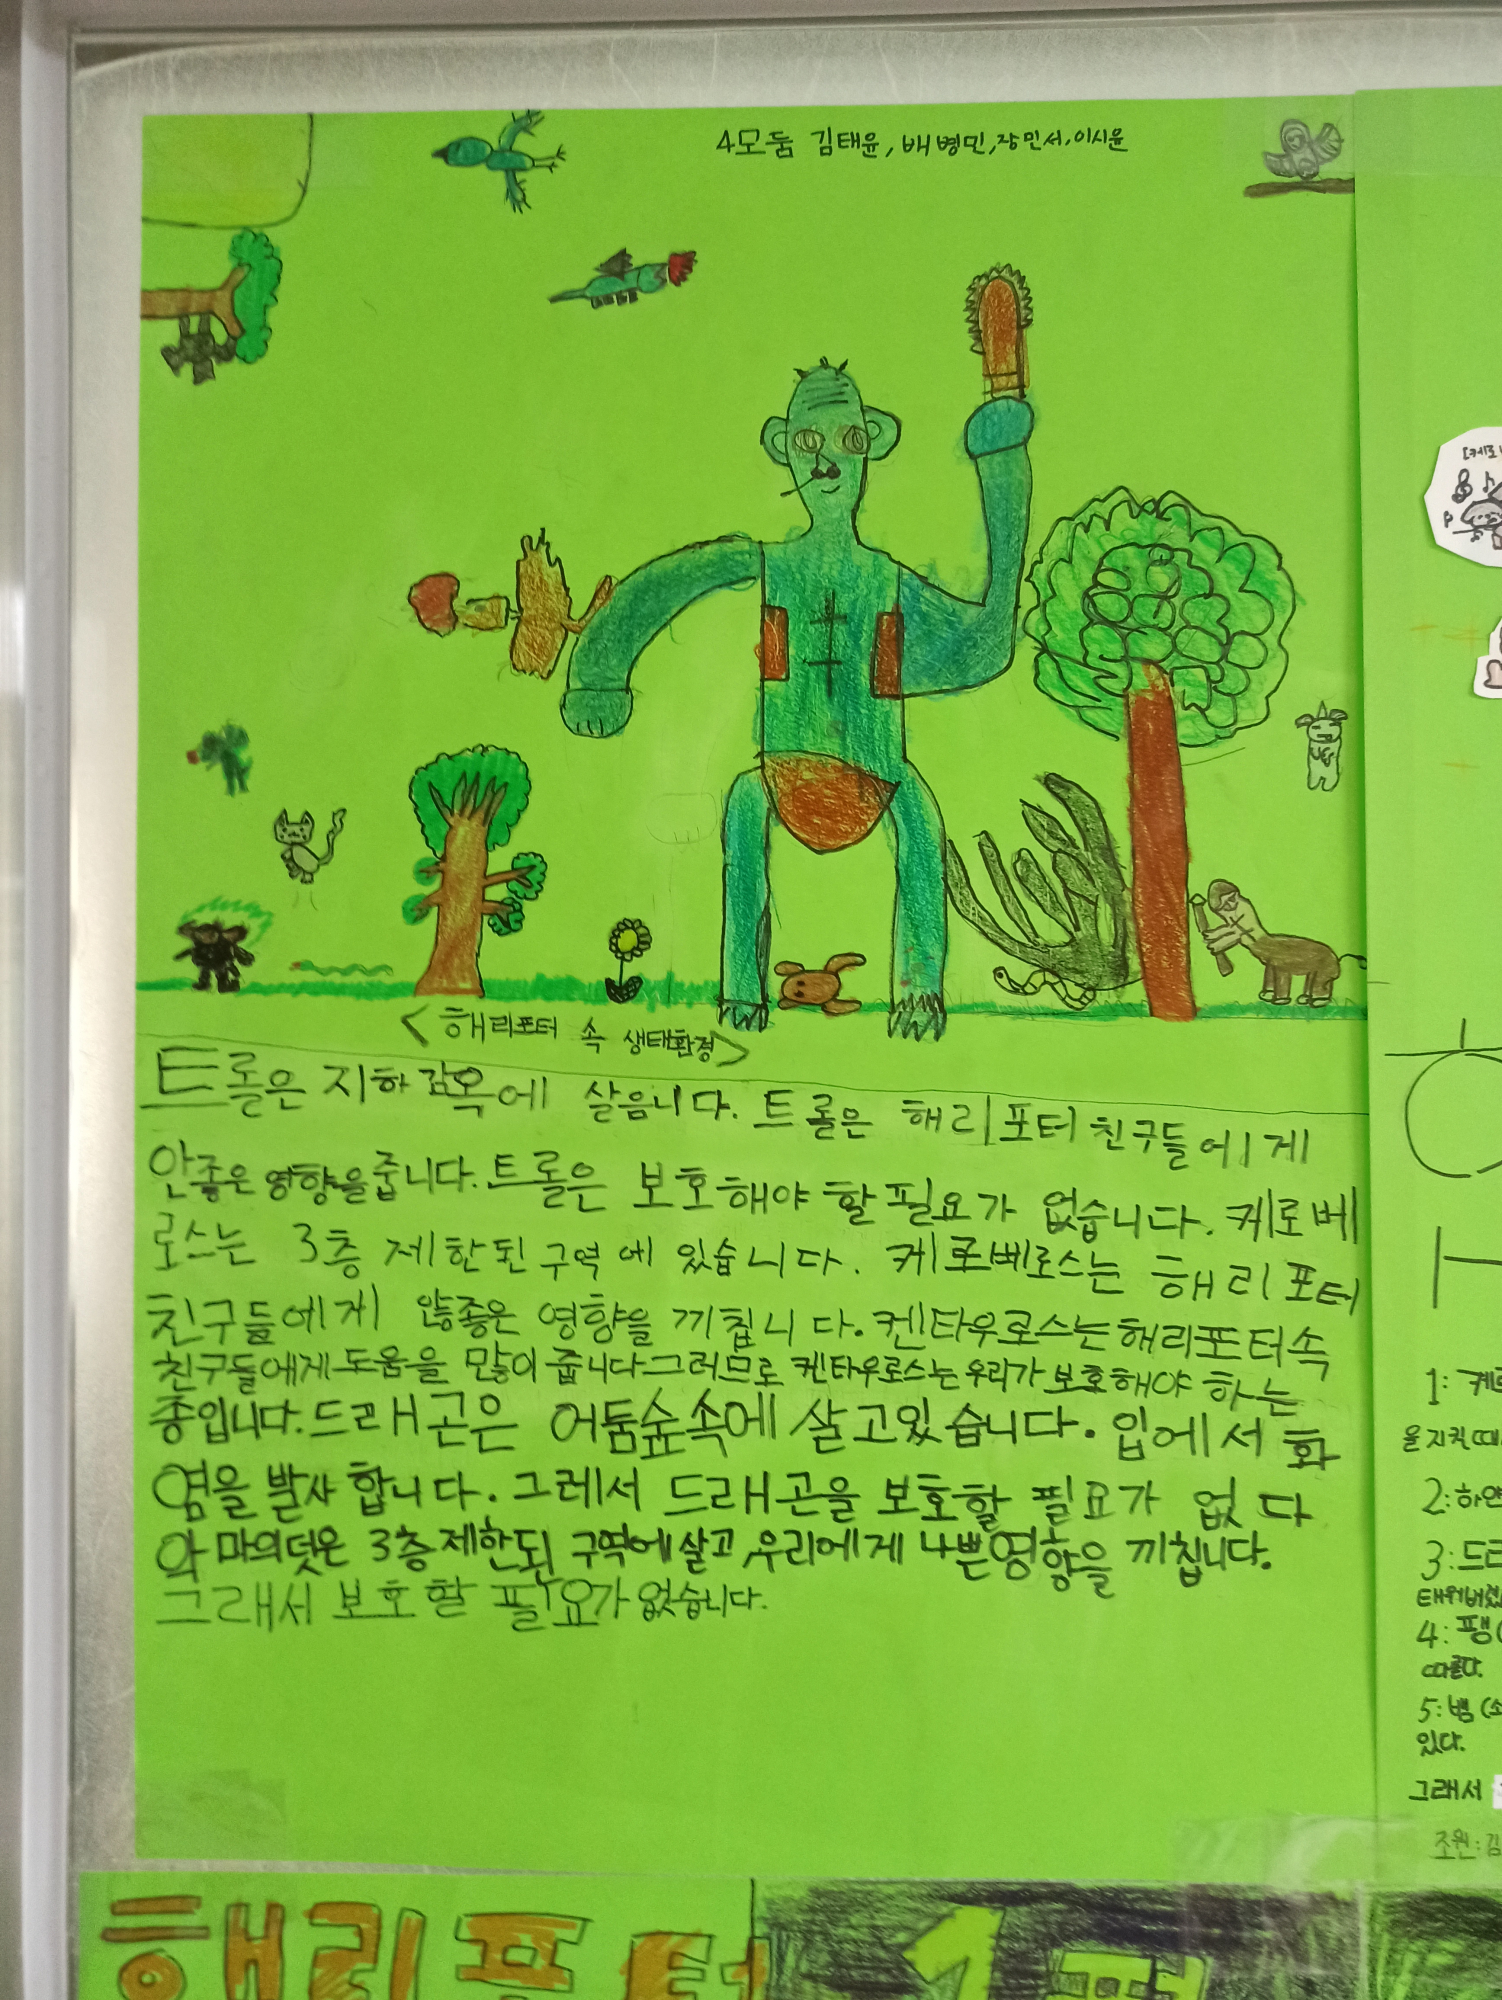 4모둠 김태윤, 배병민, 장민서, 이시윤
<해리포터 속 생태환경>
트롤은 지하감옥에 살음니다. 트롤은 해리포터 친구들에게
안좋은 영향을 줍니다. 트롤은 보호해야 할 필요가 없습니다. 케로베
로스는 3층 제한된 구역에 있습니다. 케로베로스는 해리포터
친구들에게 않좋은 영향을 끼칩니다. 켄타우로스는 해리포터 속
친구들에게 도움을 많이 줍니다 그러므로 켄타우로스는 우리가 보호해야 하는
종입니다. 드래곤은 어둠숲속에 살고있습니다. 입에서 화
염을 발사 합니다. 그레서 드래곤을 보호할 필요가 없다
악마의덫은 3층 제한된 구역에 살고, 우리에게 나쁜영향을 끼칩니다.
그래서 보호할 필요가 없습니다.
1: 케르
을지킬때
2: 하얀
3: 드
태워버렸
4: 팽(
따른다.
5: 뱀(
있다.
그래서
조원: 김
해리포터 1편